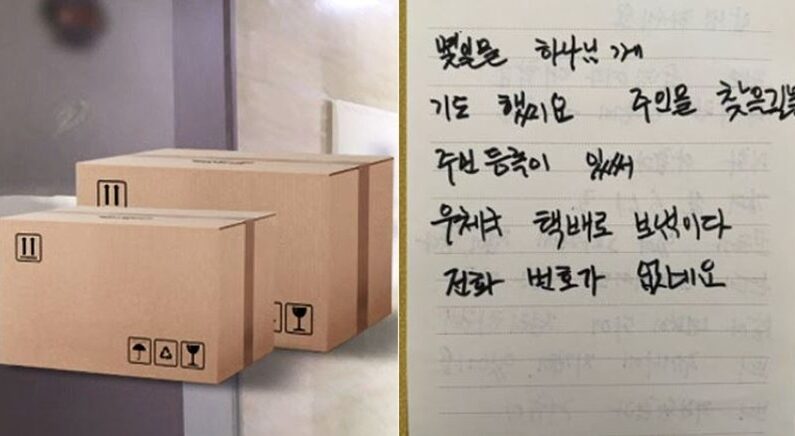 몇일을 하나님 께
기도 했미요 주인을 찾을길을
주민 등록이 있써
우체국 택배로 보냅이다
전화 번호가 없데요